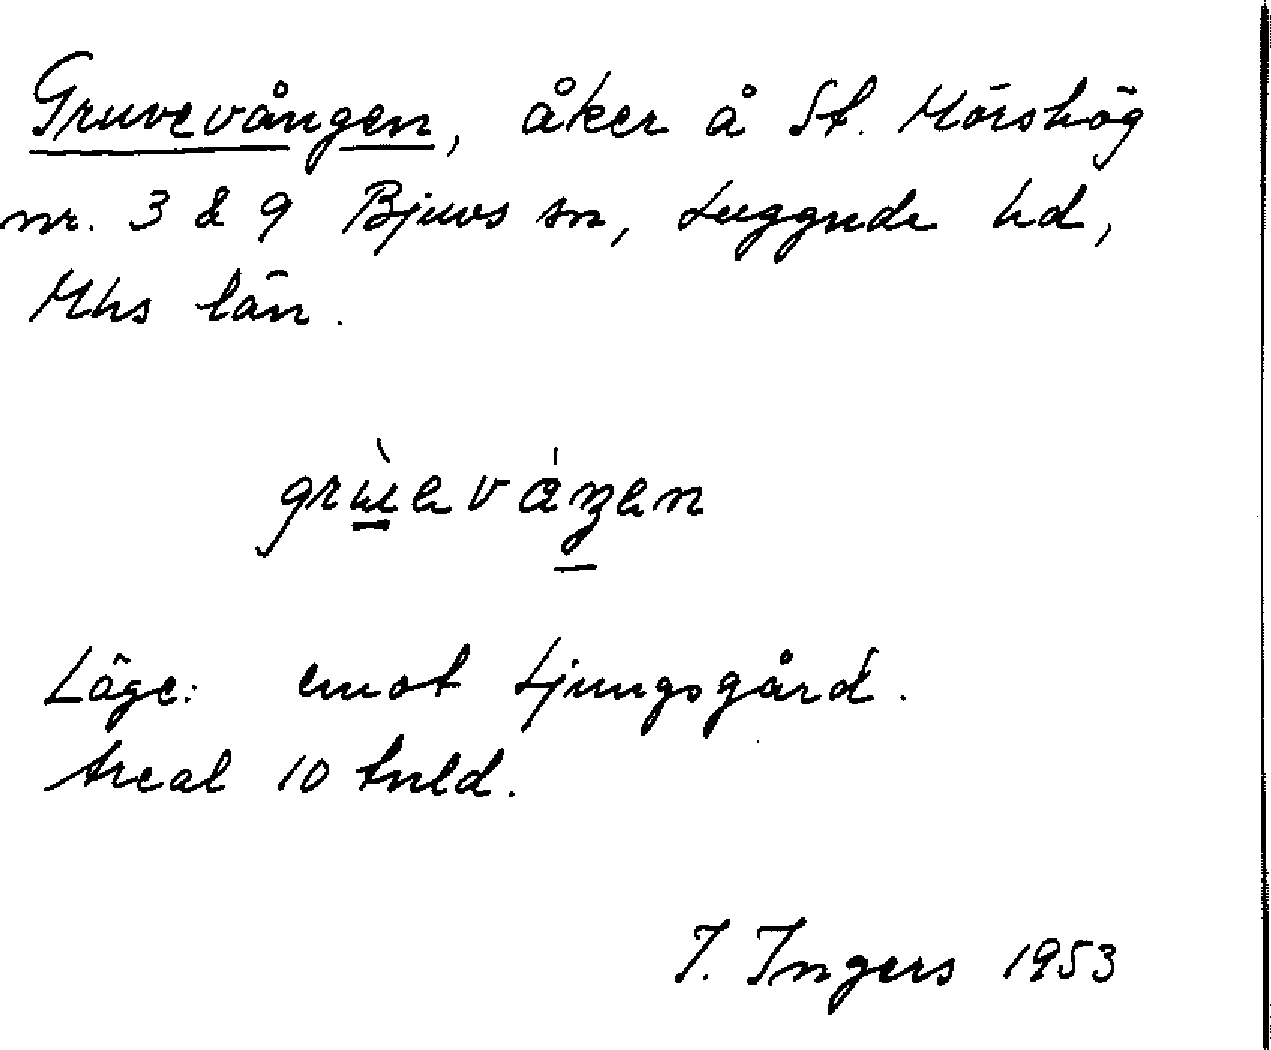 Gruvevången, åker å St. Mörshög
nr. 3 & 9 Bjuvs sn, Luggude hd,
Mhs län.
Läge: emot Ljungsgård.
Areal 10 tnld.
I. Ingers 1953